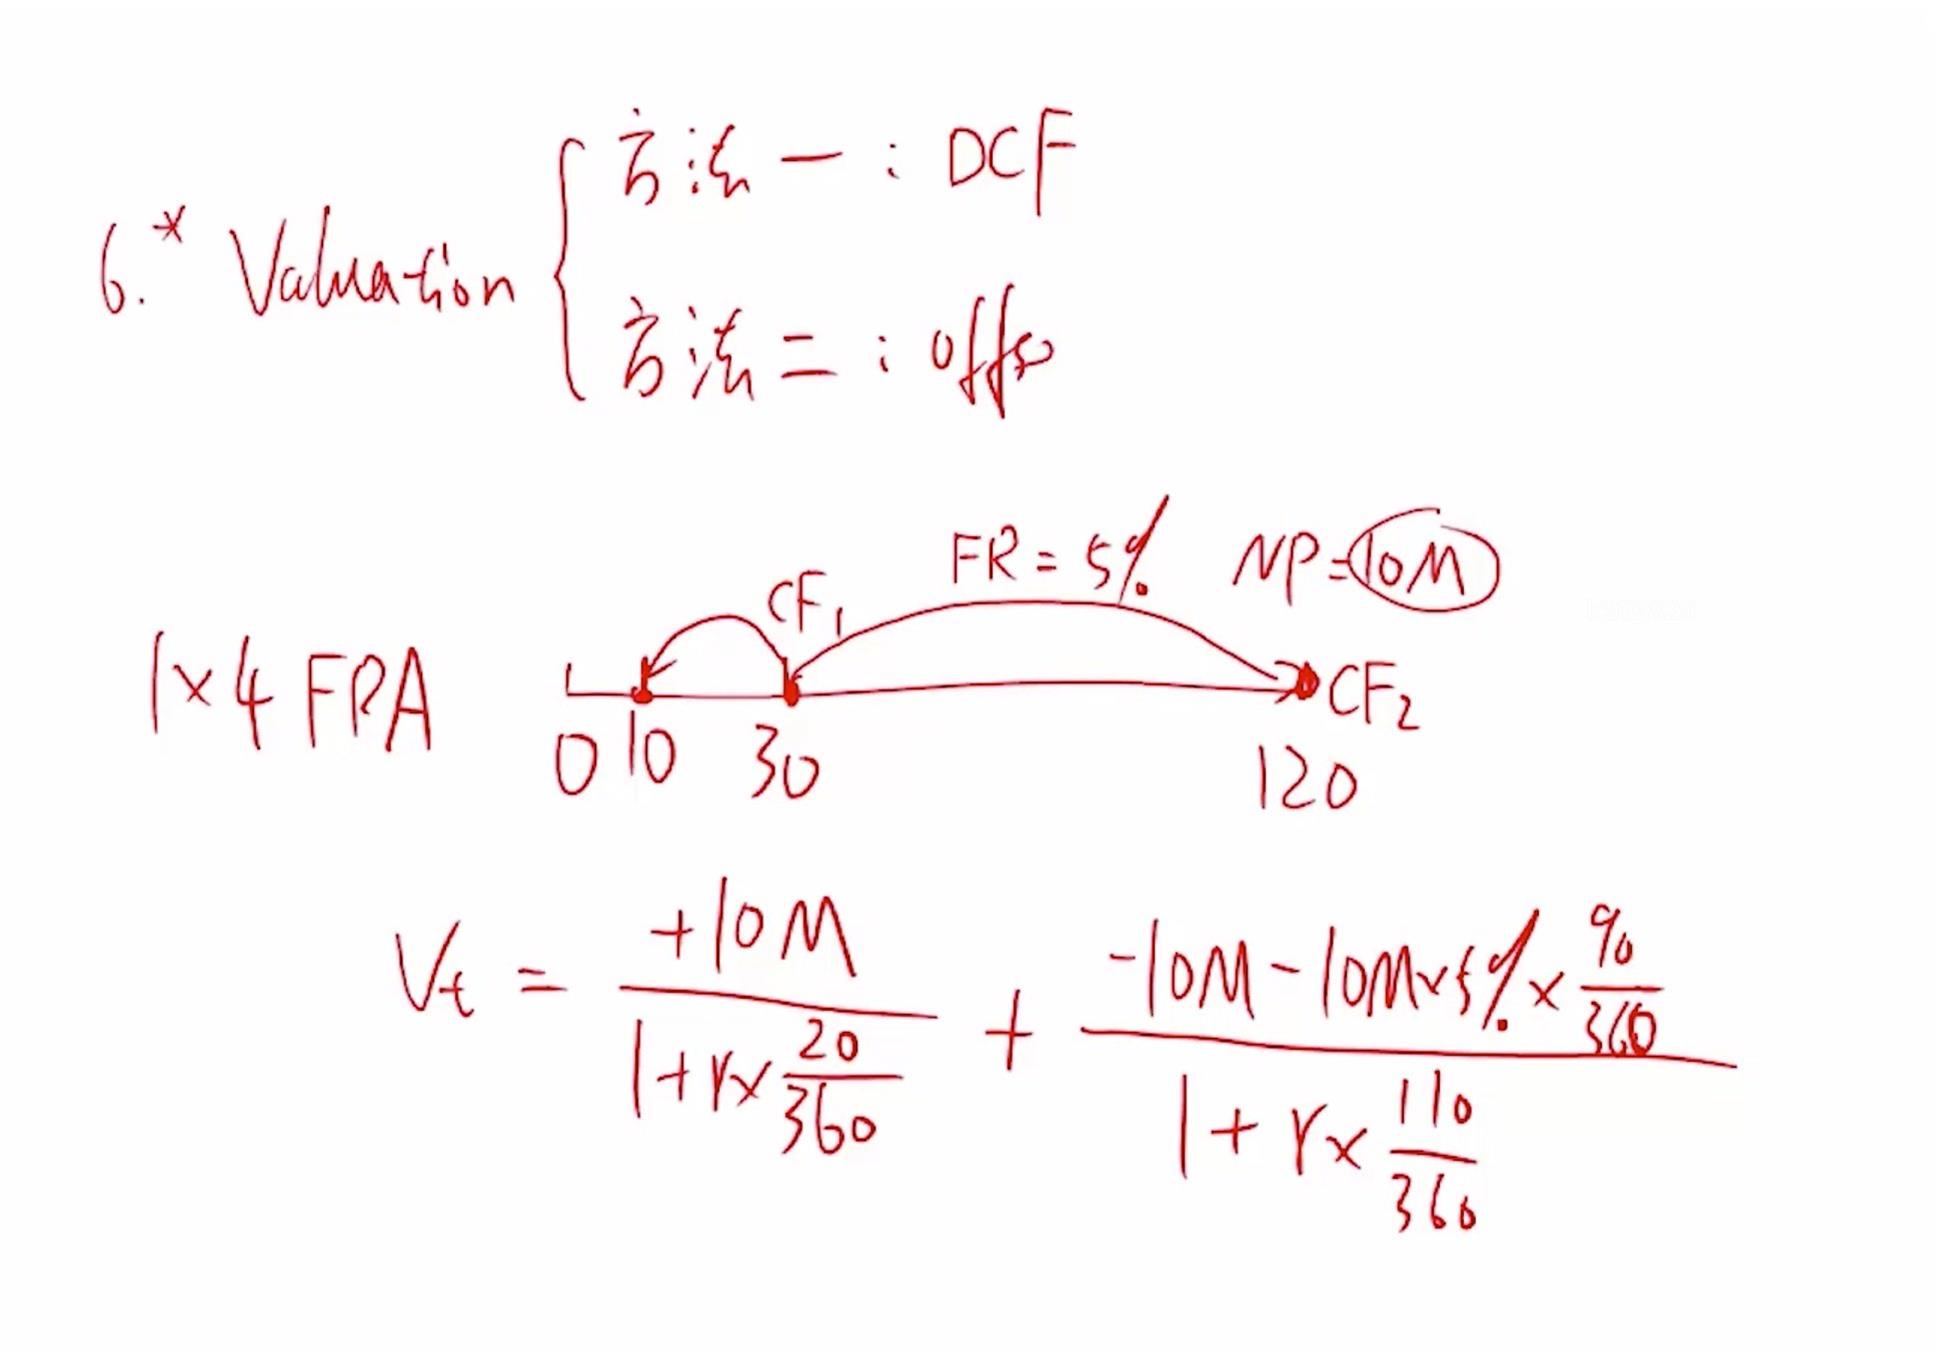 6.* Valuation { 方法一: DCF
方法二: offse
FR = 5% NP = 10M
CF₁
1×4 FRA
CF₂
0 10 30 120
Vt = +10M / (1+r×20/360) + (-10M-10M×5%×90/360) / (1+r×110/360)